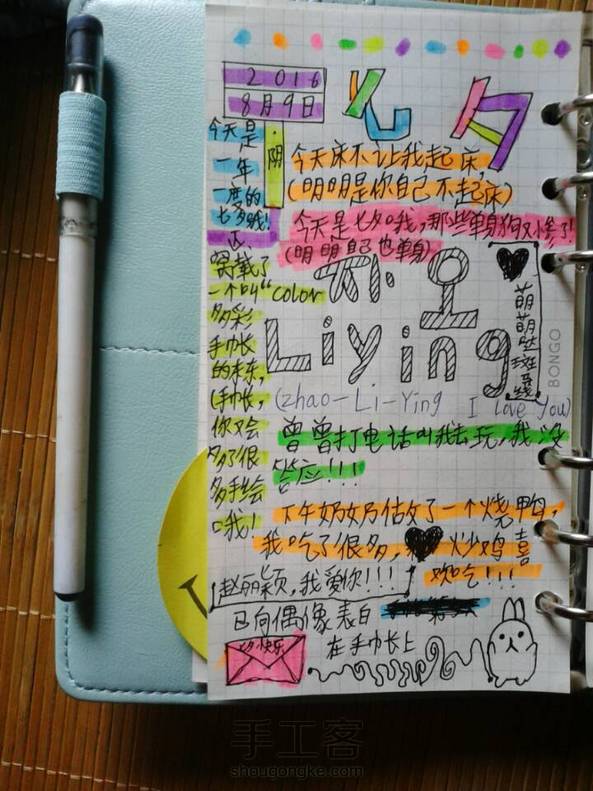 2016
8月9日
七夕
阴
今天是
一年
一度的
七夕哦!
窝载了
一个叫“color
多彩
手巾长
的本东,
(手巾长,
你又会
多了很
多手绘
哦!
今天床不让我起床,
(明明是你自己不起床)
今天是七夕哦,那些单身狗又惨了!
(明明自己也单身)
Li ying
萌萌哒斑马线
BONGO
(zhao-Li-Ying I love you)
曾曾打电话叫我去玩,我没
答应!!!
下午奶奶估攵了一个烧鸭,
我吃了很多, 炒鸡喜
欢吃!!!
赵丽颖,我爱你!!!
已向偶像表白
在手巾长上
七夕快乐
手工客
shougongke.com